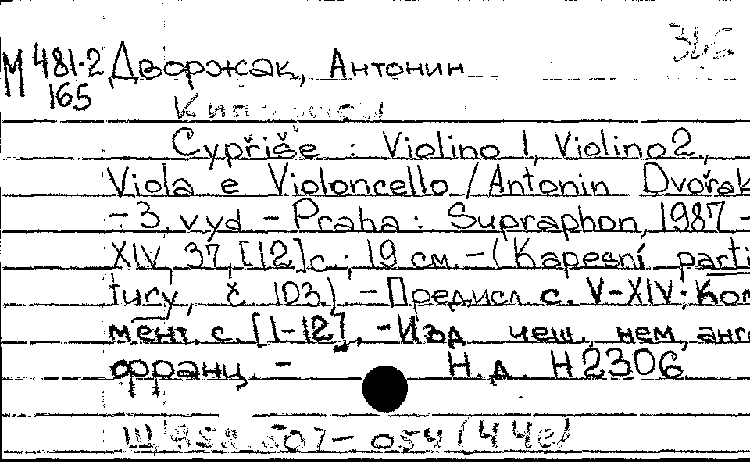 М 481-2 Дворжак, Антонин
165
Кипарисы
Cypřiše : Violino 1, Violino 2,
Viola e Violoncello / Antonin Dvořak
- 3. vyd - Praha : Supraphon, 1987 -
XIV, 37, [12] с ; 19 см. - ( Kapesní parti
tury, č. 103.) - Предисл с. V-XIV; Ком
мент. с. [1-12]. - Изд чеш., нем, англ
франц. -
Н. д. H 2306